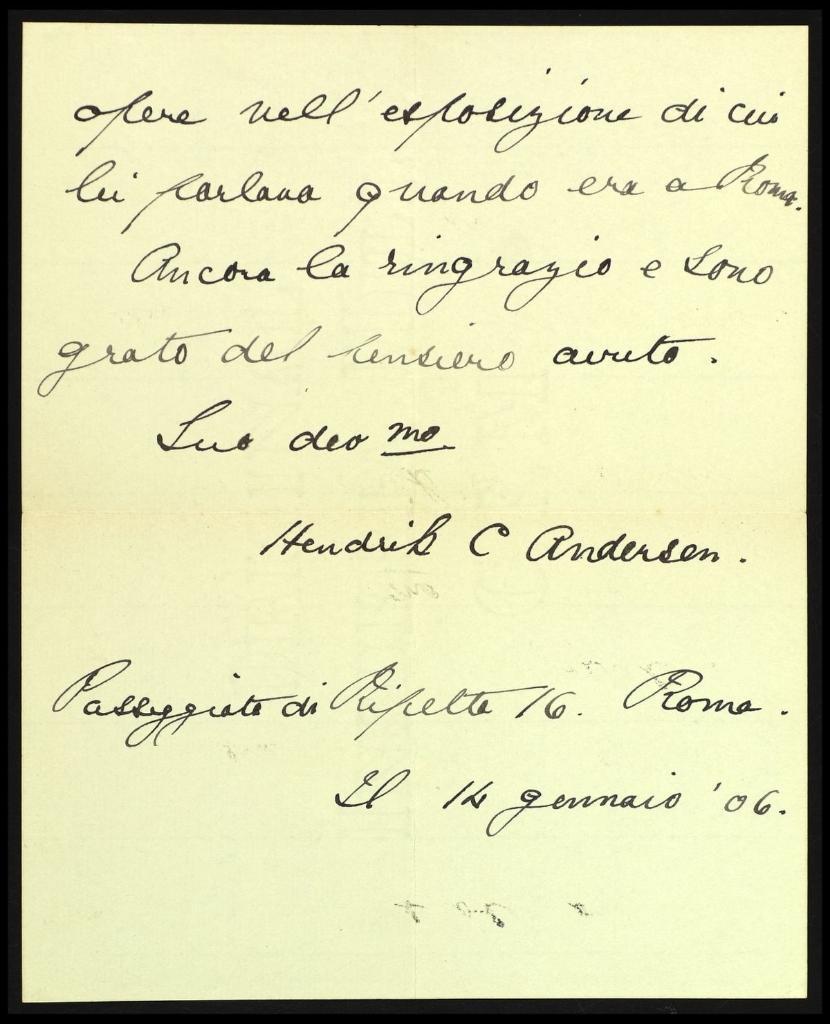 opere nell'esposizione di cui
lei parlava quando era a Roma.
Ancora la ringrazio e sono
grato del pensiero avuto.
Suo devo mo
Hendrik C Andersen.
Passeggiata di Ripetta 16. Roma.
Il 14 gennaio '06.